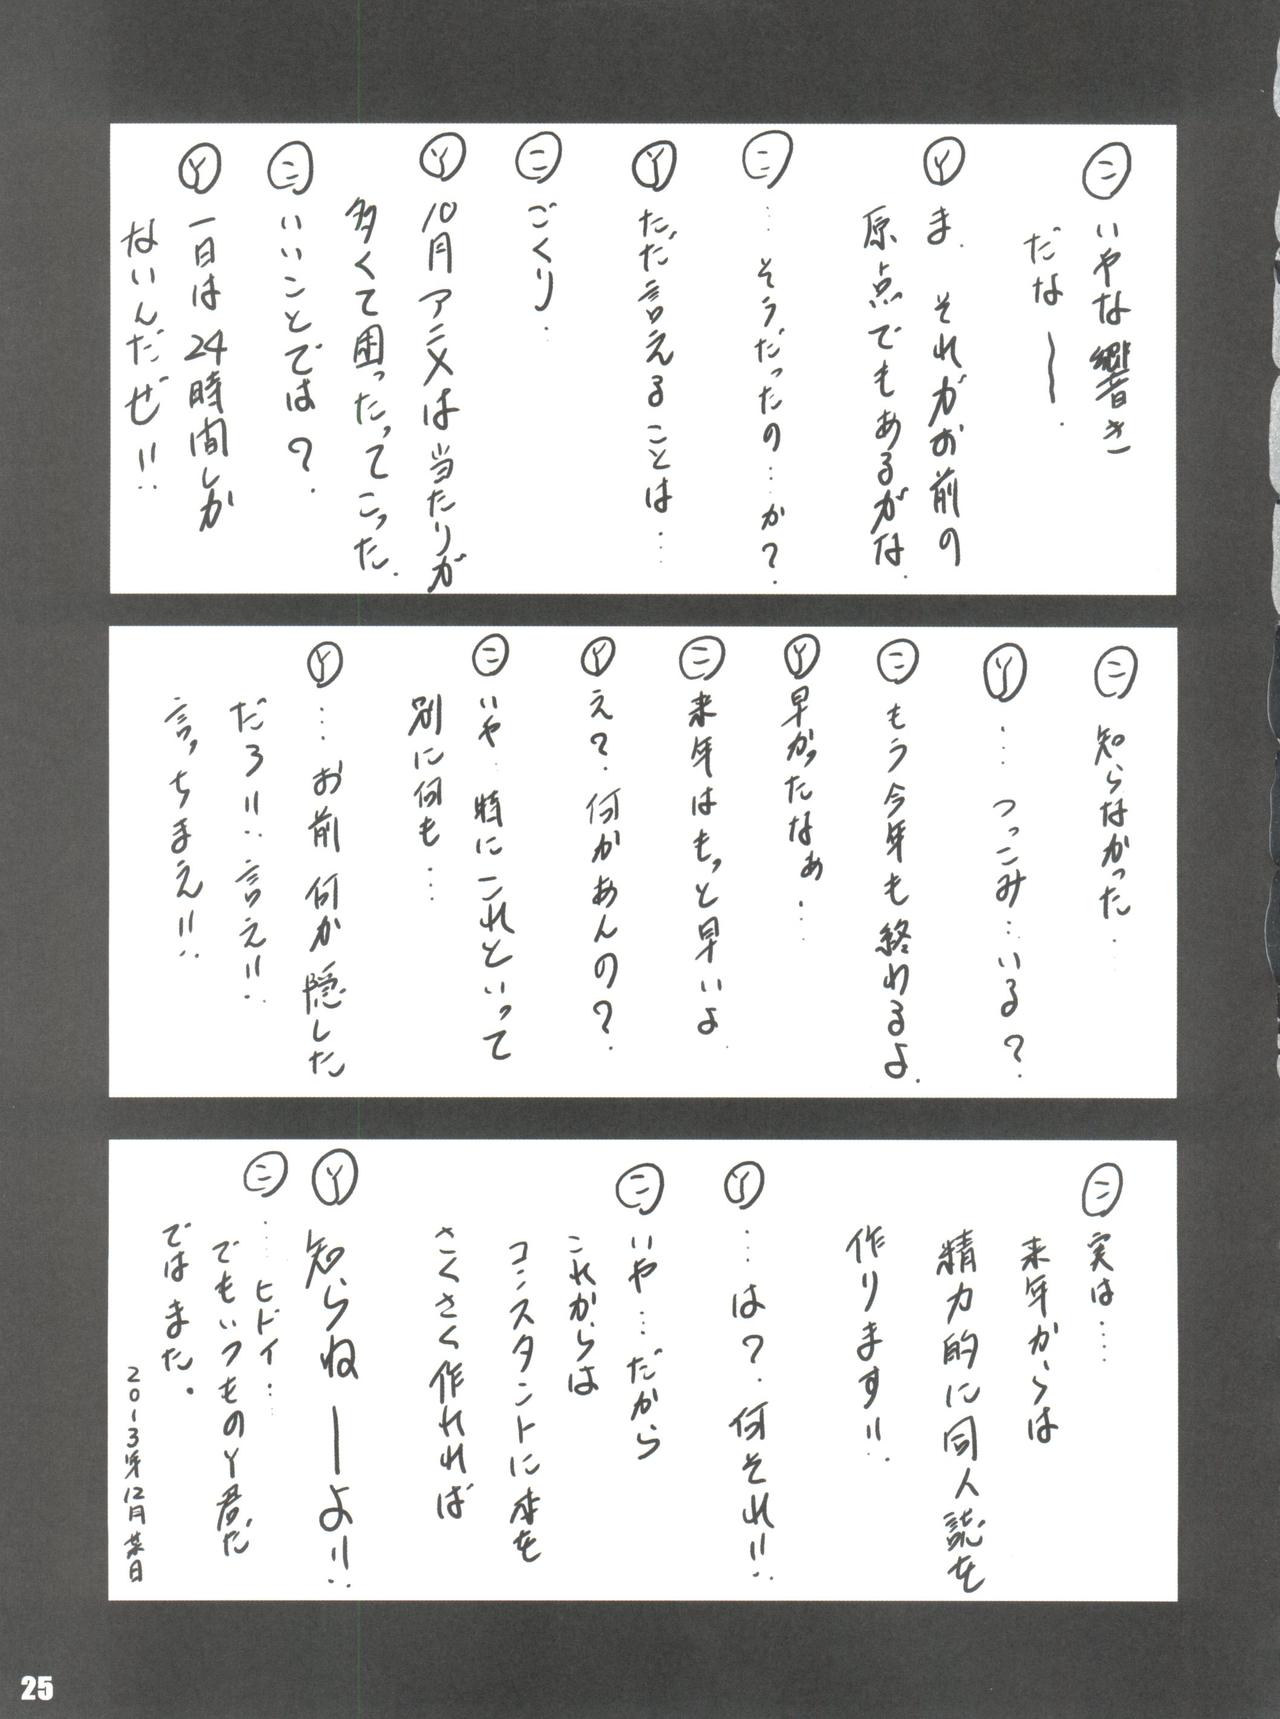 ㊁ いやな響き
だな～.
Ⓨ ま. それがお前の
原点でもあるがな.
㊁ …そうだったの…か?.
Ⓨ ただ言えることは…
㊁ ごくり..
Ⓨ 10月アニメは当たりが
多くて困ったってこった.
㊁ いいことでは?.
Ⓨ 一日は24時間しか
ないんだぜ!!
㊁ 知らなかった…
Ⓨ …つっこみ…いる?.
㊁ もう今年も終わるよ.
Ⓨ 早かったなぁ…
㊁ 来年はもっと早いよ…
Ⓨ え?.何かあんの?.
㊁ いや…特にこれといって
別に何も…
Ⓨ …お前何か隠した
だろ!!言え!!
言っちまえ!!
㊁ 実は…
来年からは
精力的に同人誌を
作ります!!
Ⓨ …は?.何それ!!
㊁ いや…だから
これからは
コンスタントに本を
さくさく作れれば
Ⓨ 知らねーよ!!
㊁ ……ヒドイ…
でもいつものY君だ
ではまた。
2013年12月某日
25